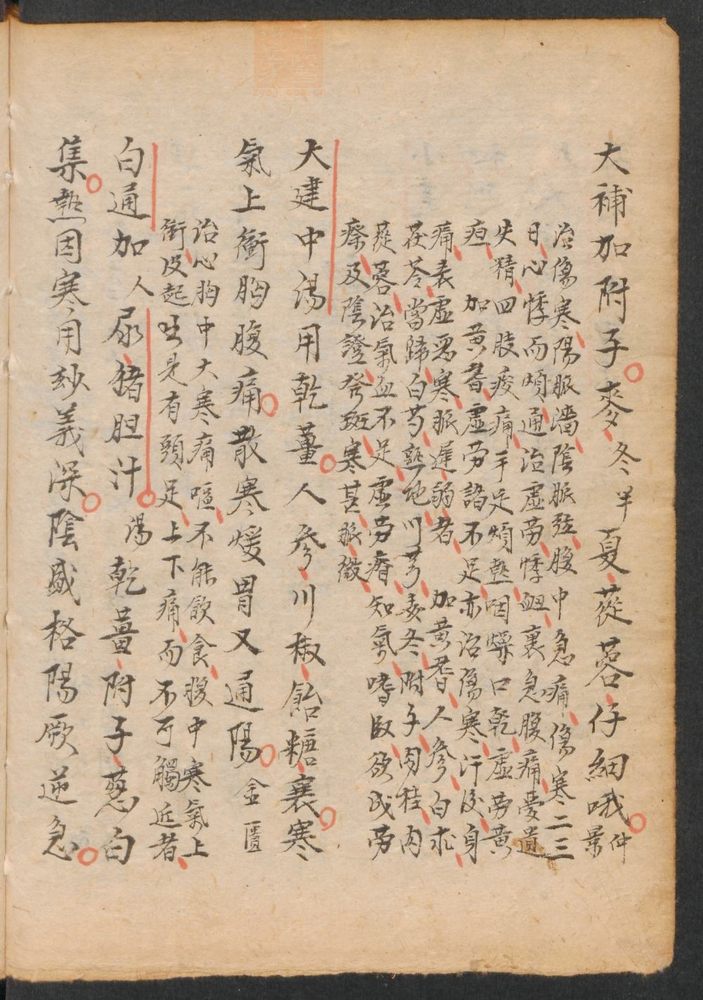 大補加附子麥冬半夏蓯蓉仔細哦仲景
治傷寒陽脈濇陰脈弦腹中急痛傷寒二三
日心悸而煩通治虛勞悸衄裏急腹痛夢遺
失精四肢痠痛手足煩熱咽燥口乾虛勞黃
疸 加黃耆虛勞諸不足亦治傷寒汗後身
痛表虛惡寒脈遲弱者 加黃耆人參白朮
茯苓當歸白芍熟地川芎麥冬附子肉桂肉
蓯蓉治氣血不足虛勞瘠知氣嗜臥欲成勞
瘵及陰證發斑寒甚脈微
大建中湯用乾薑人參川椒飴糖襄寒
氣上衝胸腹痛散寒煖胃又通陽金匱
治心胸中大寒痛嘔不能飲食腹中寒氣上
衝皮起出見有頭足上下痛而不可觸近者
白通加人尿猪胆汁湯乾薑附子葱白
集熱因寒用紗義深陰盛格陽厥逆急